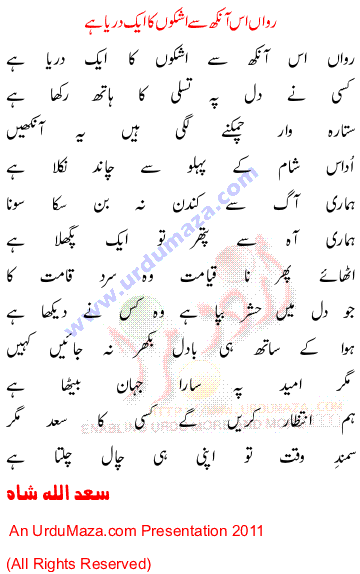 رواں اس آنکھ سے اشکوں کا ایک دریا ہے
رواں اس آنکھ سے اشکوں کا ایک دریا ہے
کسی نے دل پہ تسلی کا ہاتھ رکھا ہے
ستارہ وار چمکنے لگی ہیں یہ آنکھیں
اُداس شام کے پہلو سے چاند نکلا ہے
ہماری آگ سے کندن نہ بن سکا سونا
ہماری آہ سے پتھر تو ایک پگھلا ہے
اٹھائے پھر نا قیامت وہ سرد قامت کا
جو دل میں حشر بپا ہے وہ کس نے دیکھا ہے
ہوا کے ساتھ ہی بادل بکھر نہ جائیں کہیں
مگر امید پہ سارا جہان بیٹھا ہے
ہم انتظار کریں گے کسی کا سعد مگر
سمندِ وقت تو اپنی ہی چال چلتا ہے
سعد اللہ شاہ
An UrduMaza.com Presentation 2011
(All Rights Reserved)
www.urdumaza.com
HTTP://URDUMAZA.COM
ENABLING URDU MORE AND MORE